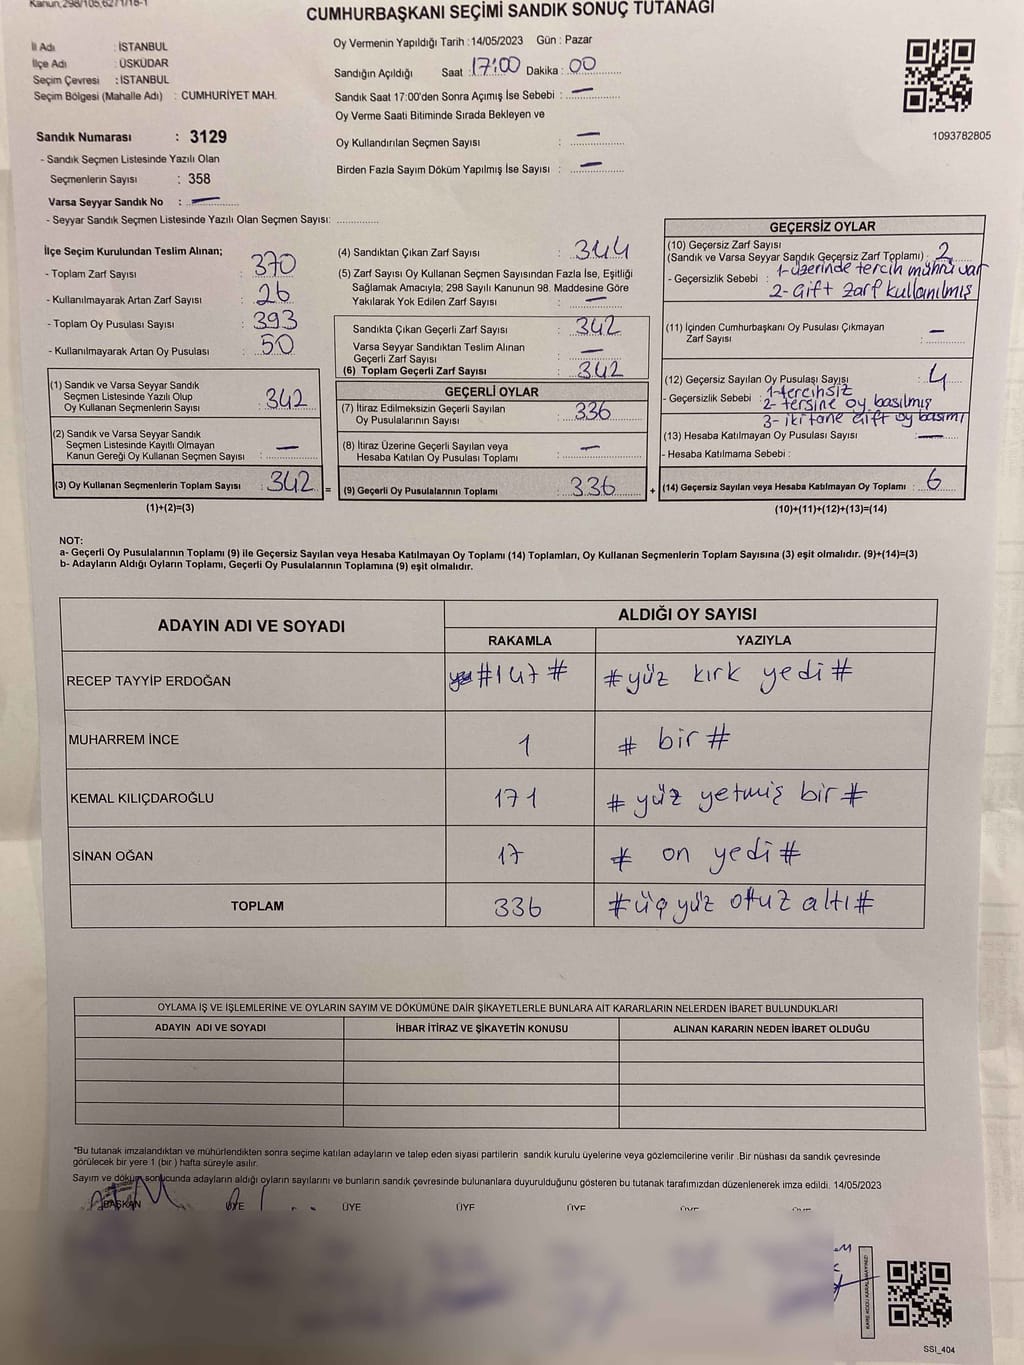 Kanun,298/105,627/1/16-1
CUMHURBAŞKANI SEÇİMİ SANDIK SONUÇ TUTANAĞI
İl Adı : İSTANBUL
İlçe Adı : ÜSKÜDAR
Seçim Çevresi : İSTANBUL
Seçim Bölgesi (Mahalle Adı) : CUMHURİYET MAH.
Sandık Numarası : 3129
- Sandık Seçmen Listesinde Yazılı Olan
Seçmenlerin Sayısı : 358
Varsa Seyyar Sandık No : —
- Seyyar Sandık Seçmen Listesinde Yazılı Olan Seçmen Sayısı: ..............
Oy Vermenin Yapıldığı Tarih : 14/05/2023 Gün : Pazar
Sandığın Açıldığı Saat : 17:00 Dakika : 00
Sandık Saat 17:00'den Sonra Açımış İse Sebebi : —
Oy Verme Saati Bitiminde Sırada Bekleyen ve
Oy Kullandırılan Seçmen Sayısı : —
Birden Fazla Sayım Döküm Yapılmış İse Sayısı : —
1093782805
İlçe Seçim Kurulundan Teslim Alınan;
- Toplam Zarf Sayısı : 370
- Kullanılmayarak Artan Zarf Sayısı : 26
- Toplam Oy Pusulası Sayısı : 393
- Kullanılmayarak Artan Oy Pusulası : 50
(1) Sandık ve Varsa Seyyar Sandık
Seçmen Listesinde Yazılı Olup
Oy Kullanan Seçmenlerin Sayısı : 342
(2) Sandık ve Varsa Seyyar Sandık
Seçmen Listesinde Kayıtlı Olmayan
Kanun Gereği Oy Kullanan Seçmen Sayısı : —
(3) Oy Kullanan Seçmenlerin Toplam Sayısı : 342 =
(1)+(2)=(3)
(4) Sandıktan Çıkan Zarf Sayısı : 344
(5) Zarf Sayısı Oy Kullanan Seçmen Sayısından Fazla İse, Eşitliği
Sağlamak Amacıyla; 298 Sayılı Kanunun 98. Maddesine Göre
Yakılarak Yok Edilen Zarf Sayısı : —
Sandıkta Çıkan Geçerli Zarf Sayısı : 342
Varsa Seyyar Sandıktan Teslim Alınan
Geçerli Zarf Sayısı : —
(6) Toplam Geçerli Zarf Sayısı : 342
GEÇERLİ OYLAR
(7) İtiraz Edilmeksizin Geçerli Sayılan
Oy Pusulalarının Sayısı : 336
(8) İtiraz Üzerine Geçerli Sayılan veya
Hesaba Katılan Oy Pusulası Toplamı : —
(9) Geçerli Oy Pusulalarının Toplamı : 336 +
GEÇERSİZ OYLAR
(10) Geçersiz Zarf Sayısı
(Sandık ve Varsa Seyyar Sandık Geçersiz Zarf Toplamı) : 2
- Geçersizlik Sebebi : 1- üzerinde tercih mührü var
2- Gift zarf kullanılmış
(11) İçinden Cumhurbaşkanı Oy Pusulası Çıkmayan
Zarf Sayısı : —
(12) Geçersiz Sayılan Oy Pusulası Sayısı : 4
- Geçersizlik Sebebi : 1- tercihsiz
2- tersine oy basılmış
3- iki tane Gift oy basımı
(13) Hesaba Katılmayan Oy Pusulası Sayısı : —
- Hesaba Katılmama Sebebi :
(14) Geçersiz Sayılan veya Hesaba Katılmayan Oy Toplamı : 6
(10)+(11)+(12)+(13)=(14)
NOT:
a- Geçerli Oy Pusulalarının Toplamı (9) ile Geçersiz Sayılan veya Hesaba Katılmayan Oy Toplamı (14) Toplamları, Oy Kullanan Seçmenlerin Toplam Sayısına (3) eşit olmalıdır. (9)+(14)=(3)
b- Adayların Aldığı Oyların Toplamı, Geçerli Oy Pusulalarının Toplamına (9) eşit olmalıdır.
ADAYIN ADI VE SOYADI ALDIĞI OY SAYISI
RAKAMLA YAZIYLA
RECEP TAYYİP ERDOĞAN #147# #yüz kırk yedi#
MUHARREM İNCE 1 # bir #
KEMAL KILIÇDAROĞLU 171 # yüz yetmiş bir #
SİNAN OĞAN 17 # on yedi #
TOPLAM 336 #üç yüz otuz altı#
OYLAMA İŞ VE İŞLEMLERİNE VE OYLARIN SAYIM VE DÖKÜMÜNE DAİR ŞİKAYETLERLE BUNLARA AİT KARARLARIN NELERDEN İBARET BULUNDUKLARI
ADAYIN ADI VE SOYADI İHBAR İTİRAZ VE ŞİKAYETİN KONUSU ALINAN KARARIN NEDEN İBARET OLDUĞU
*Bu tutanak imzalandıktan ve mühürlendikten sonra seçime katılan adayların ve talep eden siyasi partilerin sandık kurulu üyelerine veya gözlemcilerine verilir .Bir nüshası da sandık çevresinde
görülecek bir yere 1 (bir ) hafta süreyle asılır.
Sayım ve döküm sonucunda adayların aldığı oyların sayılarını ve bunların sandık çevresinde bulunanlara duyurulduğunu gösteren bu tutanak tarafımızdan düzenlenerek imza edildi. 14/05/2023
BAŞKAN ÜYE ÜYE ÜYE ÜYE ÜYE ÜYE
SSI_404